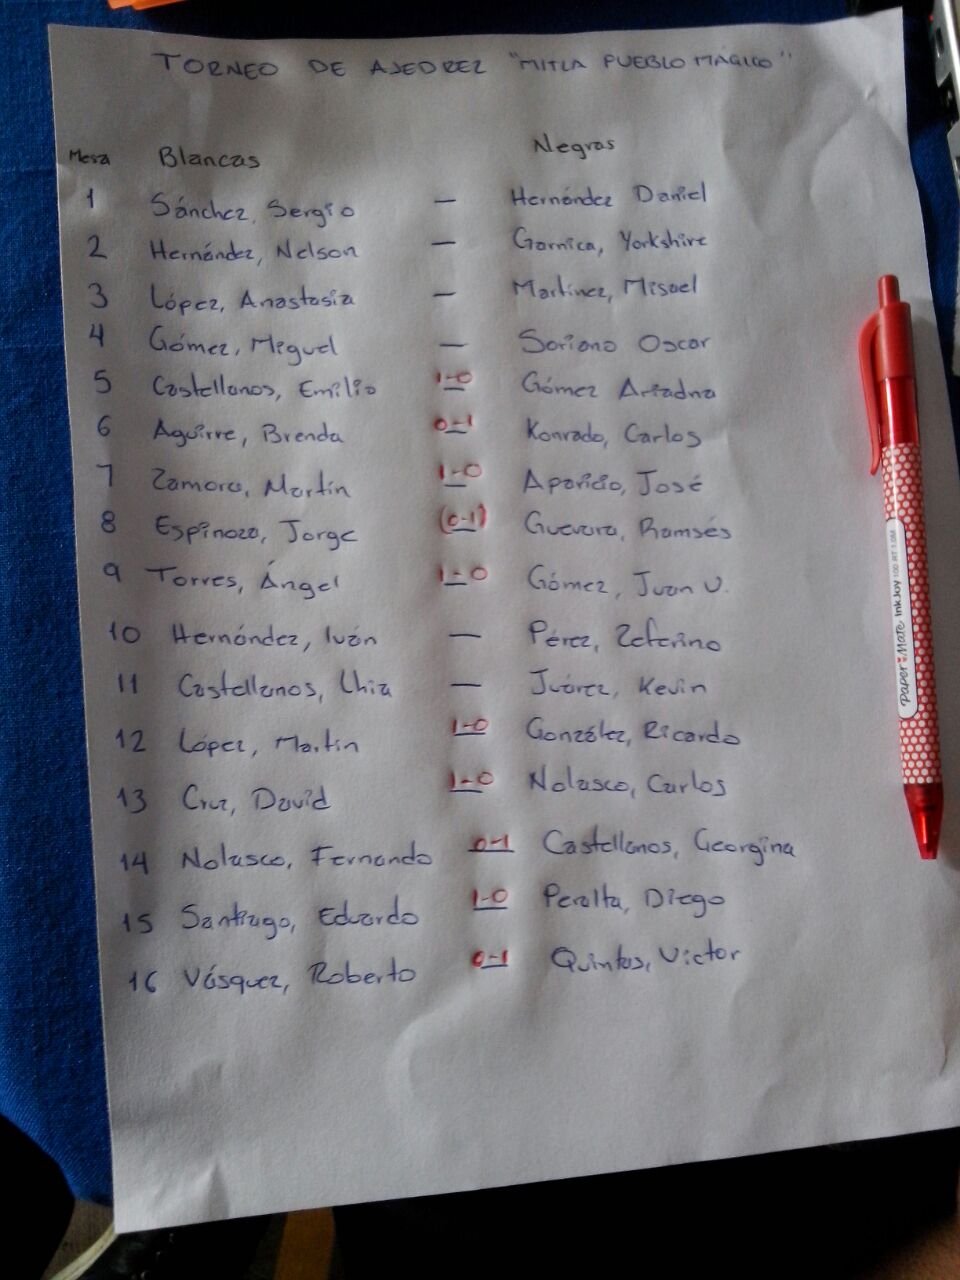 TORNEO DE AJEDREZ "MITLA PUEBLO MÁGICO"
Mesa Blancas Negras
1 Sánchez, Sergio — Hernández Daniel
2 Hernández, Nelson — Garnica, Yorkshire
3 López, Anastasia — Martínez, Misael
4 Gómez, Miguel — Soriano Oscar
5 Castellanos, Emilio 1-0 Gómez Ariadna
6 Aguirre, Brenda 0-1 Konrado, Carlos
7 Zamora, Martín 1-0 Aparicio, José
8 Espinoza, Jorge (0-1) Guevara, Ramsés
9 Torres, Ángel 1-0 Gómez, Juan V.
10 Hernández, Iván — Pérez, Zeferino
11 Castellanos, Lhia — Juárez, Kevin
12 López, Martín 1-0 González, Ricardo
13 Cruz, David 1-0 Nolasco, Carlos
14 Nolasco, Fernando 0-1 Castellanos, Georgina
15 Santiago, Eduardo 1-0 Peralta, Diego
16 Vásquez, Roberto 0-1 Quintas, Victor
Paper Mate InkJoy 100 RT 1.0M